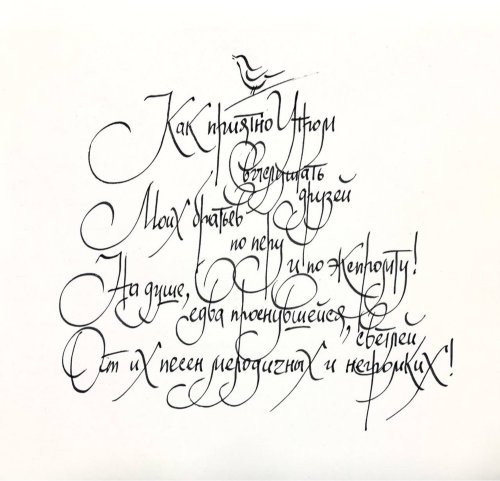 Как приятно Утром
выслушать
друзей
Моих братьев
по перу
и по жепромту!
На душе,
едва проснувшейся,
светлей
От их песен мелодичных и негромких!